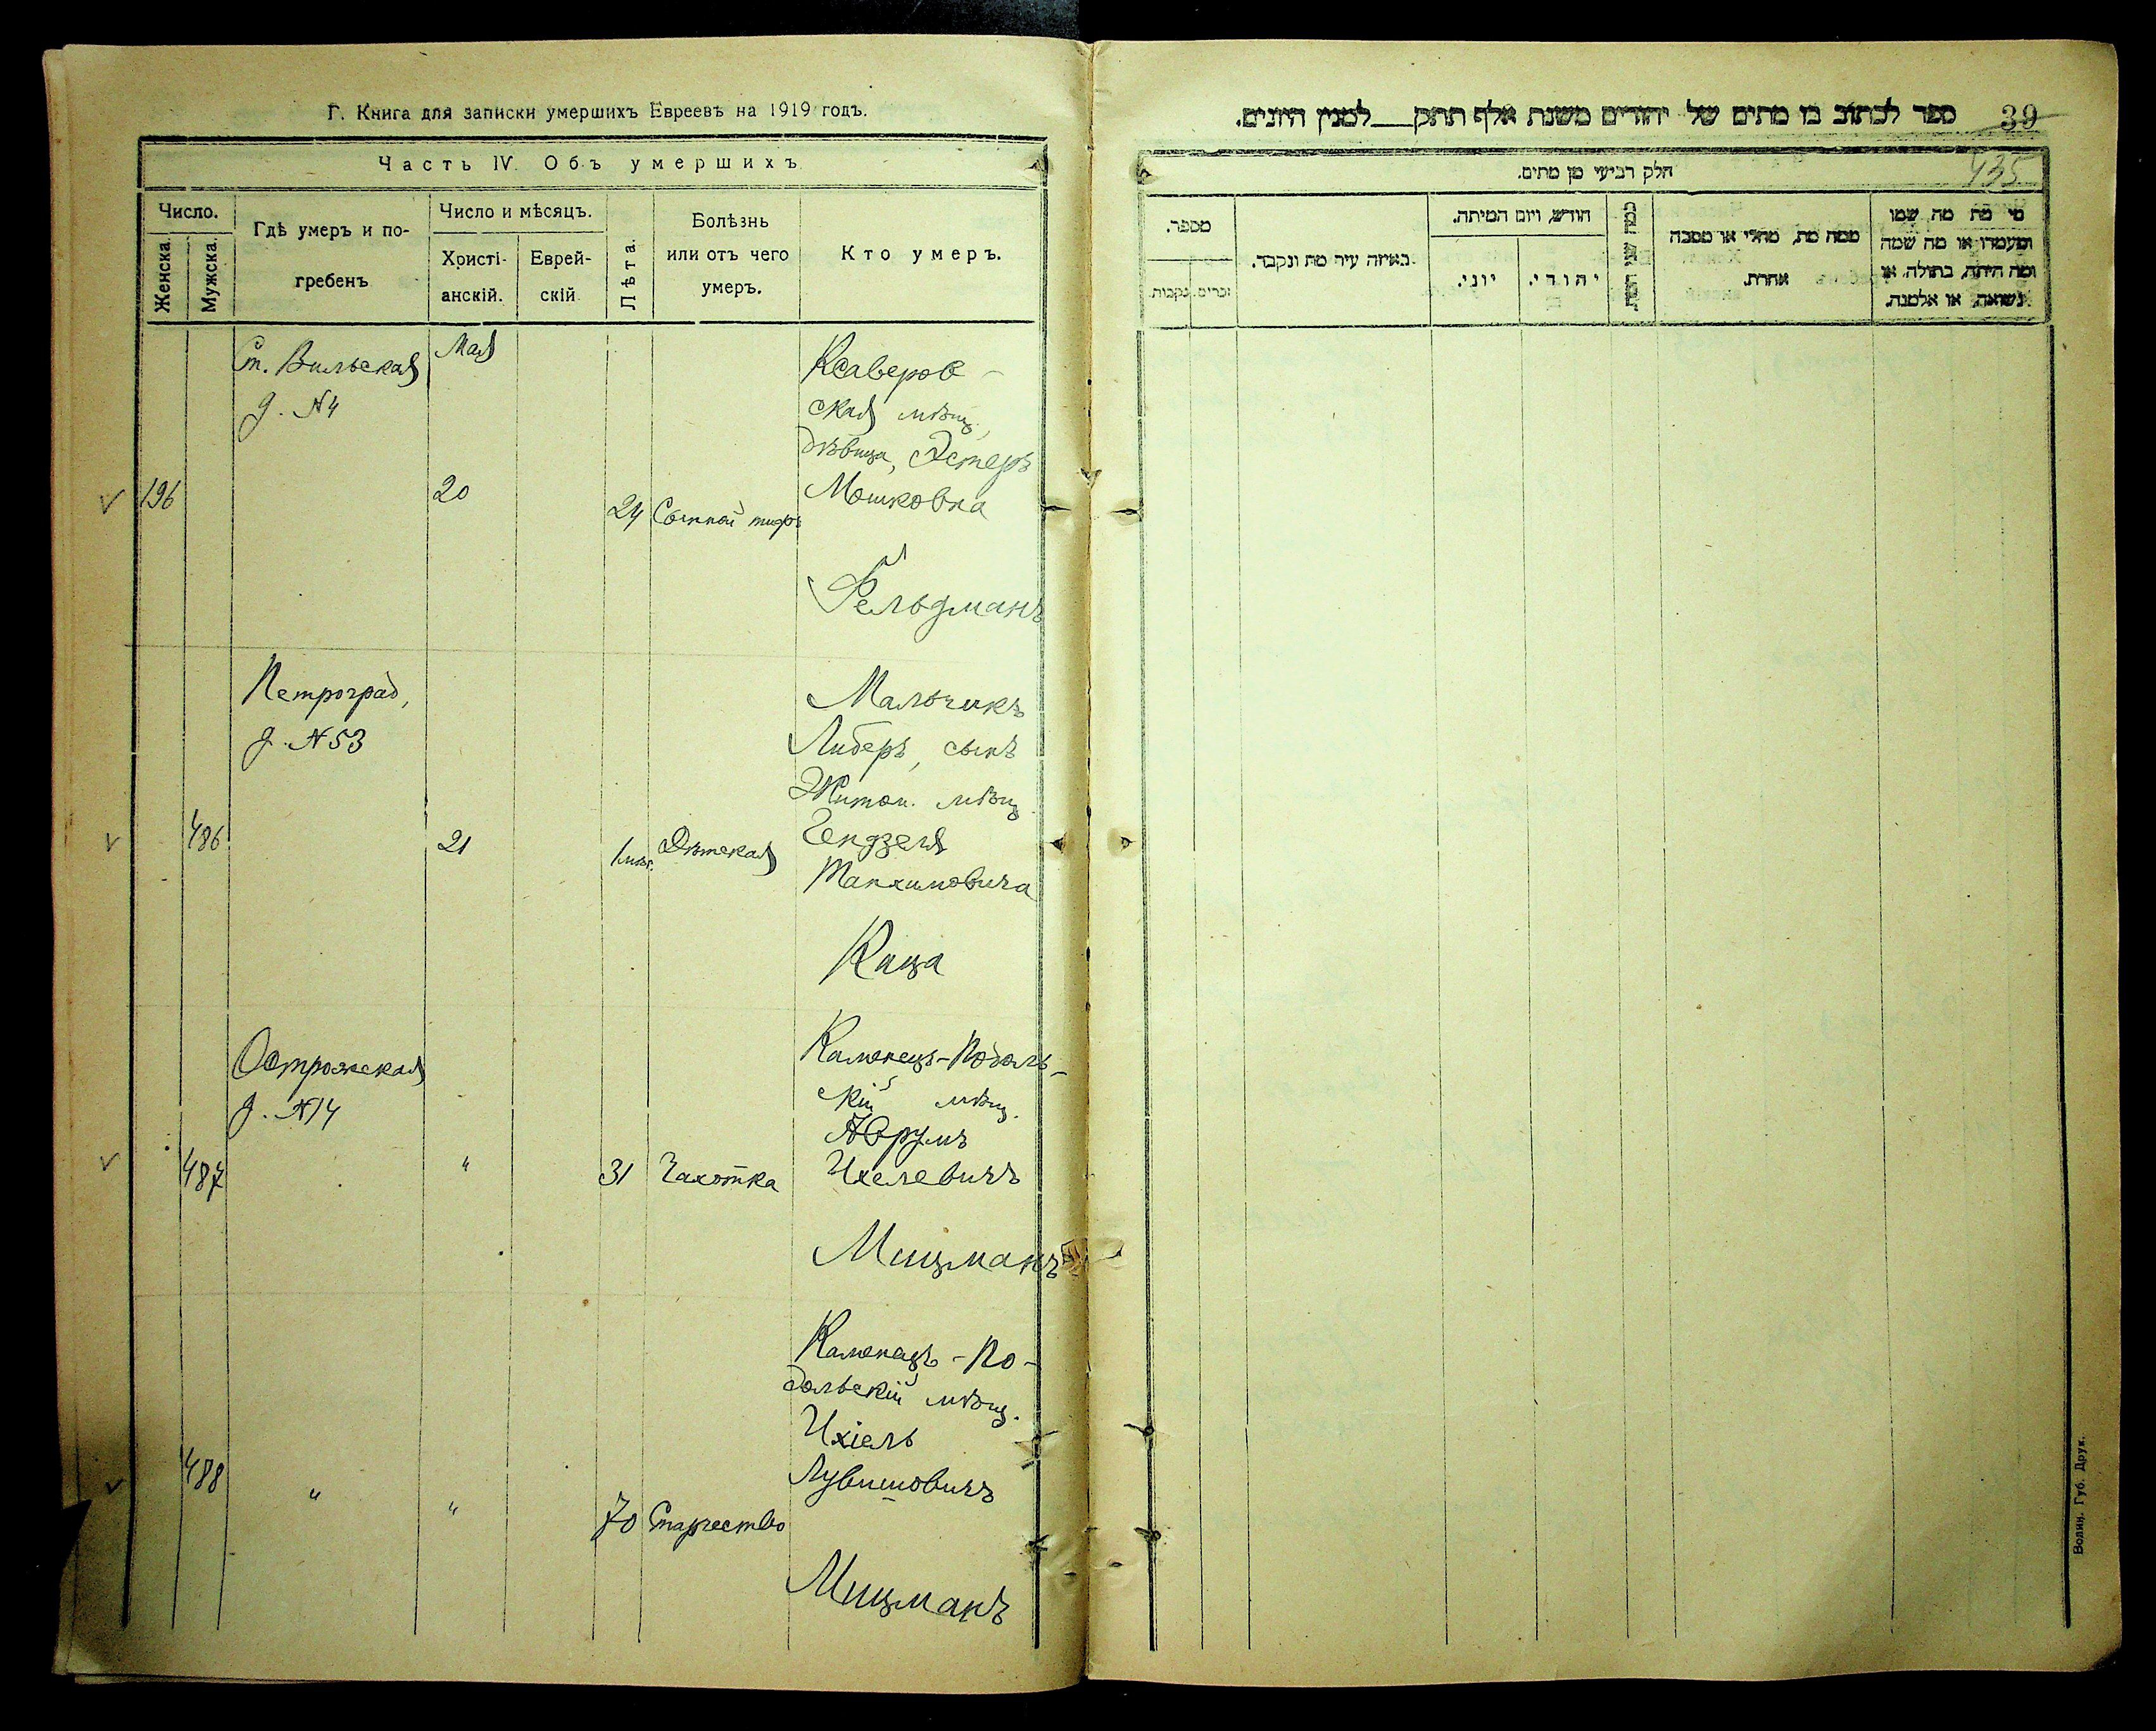 Г. Книга для записки умершихъ Евреевъ на 1919 годъ.
Часть IV. Объ умершихъ.
Число.
Женска.
Мужска.
Гдѣ умеръ и по-
гребенъ
Число и мѣсяцъ.
Христі-
анскій.
Еврей-
скій
Лѣта.
Болѣзнь
или отъ чего
умеръ.
Кто умеръ.
Ст. Вильская
д. №4
Мая
196
20
24
Сыпной тифъ
Ксаверов-
ская мѣщ.
дѣвица, Эстеръ
Мошковна
Фельдманъ
Петроград,
д. №53
486
21
1 мѣс.
Дѣтская
Мальчикъ
Либеръ, сынъ
Житом. мѣщ.
Гендзеля
Танхимовича
Каца
Острожская
д. №14
487
"
31
Чахотка
Каменецъ-Подоль-
кій мѣщ.
Аврумъ
Ихелевичъ
Мицманъ
488
"
"
70
Старчество
Каменецъ-По-
дольскій мѣщ.
Ихіель
Лувишовичъ
Мицманъ
ספר לכתוב בו מתים של יהודים משנת אלף תתק___למנין היונים.
39
435
חלק רביעי מן מתים.
מספר.
זכרים.
נקבות.
באיזה עיר מת ונקבר.
חודש, ויום המיתה.
יוני.
יהודי.
ממה מת, מחלי או מסבה
אחרת.
מי מת מה שמו
ומעמדו או מה שמה
ומה היתה, בתולה, או
נשואה, או אלמנה.
Волин. Губ. Друк.